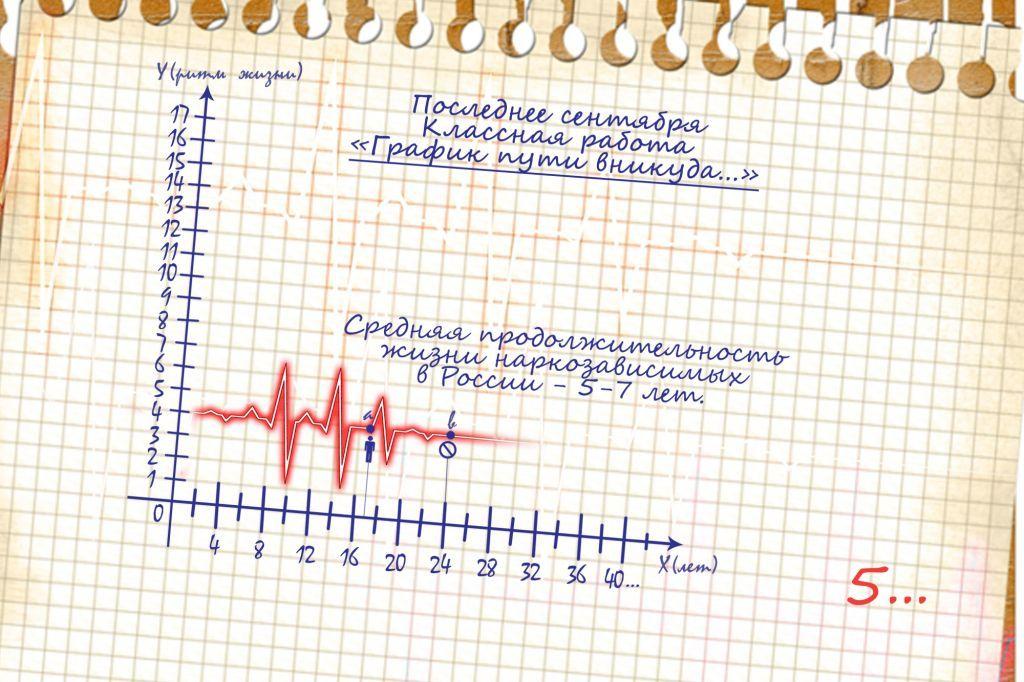 Y(ритм жизни)
Последнее сентября
Классная работа
«График пути вникуда...»
17
16
15
14
13
12
11
10
9
8
7
6
5
4
3
2
1
0
Средняя продолжительность
жизни наркозависимых
в России - 5-7 лет.
а
в
4 8 12 16 20 24 28 32 36 40...
X(лет)
5...